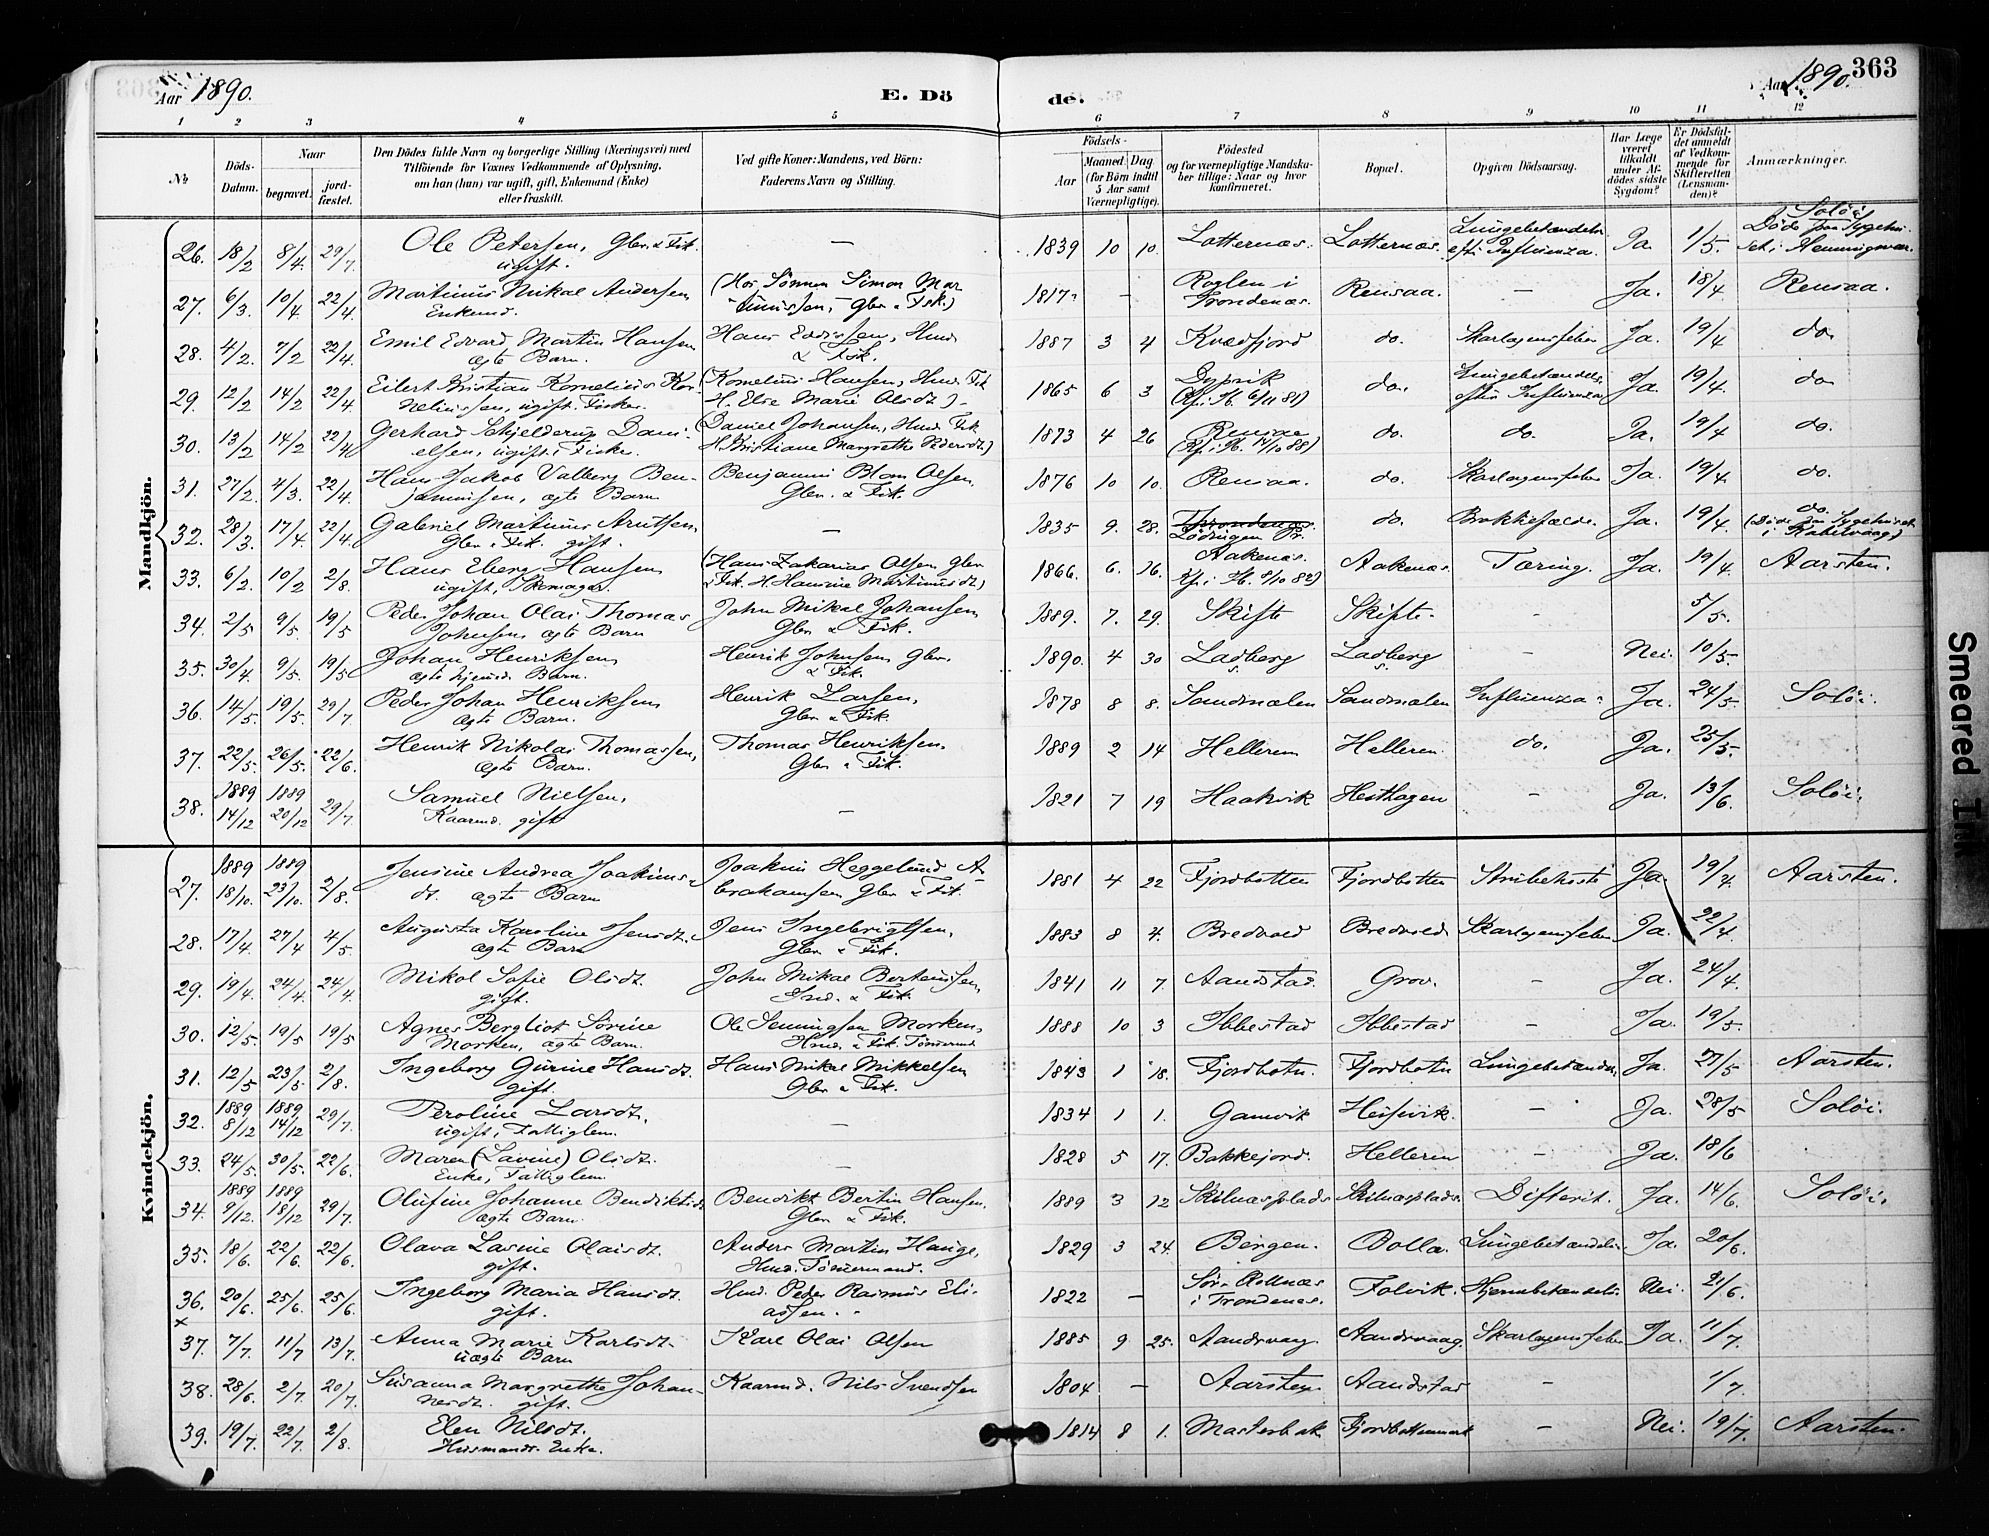 Aar 1890.
E. Dö
de.
Aar 1890. 363
1 2 3 4 5 6 7 8 9 10 11 12
No
Döds-Datum.
Naar
begravet.
jord-fæstet.
Den Dödes fulde Navn og borgerlige Stilling (Næringsvei) med
Tilföiende for Voxnes Vedkommende af Oplysning,
om han (hun) var ugift, gift, Enkemand (Enke)
eller fraskilt.
Ved gifte Koner: Mandens, ved Börn:
Faderens Navn og Stilling.
Födsels-
Aar
Maaned Dag
(for Börn indtil
5 Aar samt
Værnepligtige).
Födested
og for værnepligtige Mandska-
ber tillige: Naar og hvor
konfirmeret.
Bopæl.
Opgiven Dödsaarsag.
Har Læge
været
tilkaldt
under Af-
dödes sidste
Sygdom?
Er Dödsfal-
det anmeldt
af Vedkom-
mende for
Skifteretten
(Lensman-
den)?
Anmærkninger.
Mandkjön.
26. 18/2 8/4 29/7 Ole Petersen, Gbr. & Fisk. — 1839 10 10. Lotternæs. Lotternæs. Lungebetændelse Ja. 1/5. Soløi
ugift. eft. Influenza. Døde paa Sygehu-
set i Henningsvær.
27. 6/3 10/4 22/4 Martinus Mikal Andersen (Hos Sønnen Simon Mar- 1817 — Roglen i Rensaa. — Ja. 18/4 Rensaa.
Enkemd. tinussen, Gbr. & Fisk.) Trondenæs.
28. 4/2 7/2 22/4 Emil Edvard Martin Hansen Hans Hmd. 1887 3 4 Kvædfjord do. Skarlagensfeber Ja. 19/4 do.
ægte Barn. & Fisk.
29. 12/2 14/2 22/4 Eilert Kristian Kornelius Kor- (Kornelius Hansen, Hmd. Fisk 1865 6 3 Dyrvik do. Lungebetændelse Ja. 19/4 do
neliussen, ugift. Fisker. H. Else Marie Olsdt) (Kfi. Ib. 6/11 81) efter Influenza
30. 13/2 14/2 22/4 Gerhard Schjelderup Dani- (Daniel Johansen, Hmd. Fisk 1873 4 26 Rensaa do. do. Ja. 19/4 do.
elsen, ugift, Fisker. H. Kristiane Margrethe Pedersdt.) (Kfi. Ib. 14/10 88)
31. 27/2 4/3. 22/4. Hans Jakob Valberg Ben- Benjamin Blom Olsen, 1876 10 10. Rensaa. do. Skarlagensfeber Ja. 19/4 do.
jaminsen, ægte Barn Gbr. & Fisk.
32. 28/3. 17/4. 22/4. Gabriel Martinus Arntsen, — 1835 9. 28. Throndenæs. do. Brokkefælde. Ja. 19/4. do.
Gbr. & Fisk. gift. Lødingen Pr. (Døde paa Sygehuset
i Kabelvaag)
33. 6/2 10/2 2/8 Hans Eberg Hansen (Hans Zakarias Olsen Gbr. 1866. 6. 16. Aakenæs. Aakenæs. Tæring. Ja. 19/4. Aarsten.
ugift, Skomager. & Fisk. H. Hansine Martinusdt.) Kfi. Ib. 8/10 82)
34. 2/5 9/5. 19/5 Peder Johan Olai Thomas John Mikal Johansen 1889. 7. 29. Skifte Skifte. — 5/5.
Johnsen, ægte Barn Gbr. & Fisk.
35. 30/4 9/5. 19/5 Johan Henriksen Henrik Johnsen Gbr. 1890. 4 30 Ladberg Ladberg — Nei. 10/5.
ægte hjemd. Barn. & Fisk.
36. 14/5. 19/5. 29/7 Peder Johan Henriksen Henrik Larsen, 1878 8 8. Sandmælen Sandmælen Influenza. Ja. 24/5. Soløi.
ægte Barn. Gbr. & Fisk.
37. 22/5. 26/5. 22/6. Henrik Nikolai Thomassen, Thomas Henriksen. 1889 2 14 Helleren Helleren. do. Ja. 25/5.
ægte Barn. Gbr. & Fisk.
38. 1889 14/12 1889 20/12 29/7 Samuel Nielsen, — 1821 7 19 Haakvik Hesthagen — Ja. 13/6. Soløi.
Kaarmd. gift
Kvindekjön.
27. 1889 18/10. 1889 23/10. 2/8. Jensine Andrea Joakims- Joakim Heggelund A- 1881 4 22 Fjordbotten Fjordbotten Strubehoste Ja. 19/4. Aarsten.
dt. ægte Barn brahamsen Gbr & Fisk.
28. 17/4. 27/4 4/5 Augusta Karoline Jensdt. Jens Ingebrigtsen, 1883 8 4. Bredvold Bredvold Skarlagensfeber Ja. 22/4.
ægte Barn Gbr. & Fisk.
29. 19/4. 24/4. 24/4. Mikol Sofie Olsdt. John Mikal Berteussen, 1841 11 7. Aandstad. Grov. Ja. 24/4.
gift. & Fisk.
30. 12/5. 19/5 19/5 Agnes Bergliot Sørine Ole Morken, 1888 10 3 Ibbestad Ibbestad — Ja. 19/5.
Morken, ægte Barn. Hmd. & Fisk. Tømmermd
31. 12/5 23/5 2/8. Ingeborg Gurine Hansdt. Hans Mikal Mikkelsen 1843 1 18. Fjordbotn. Fjordbotn Lungebetændelse Ja. 27/5 Aarsten.
gift. Gbr & Fisk.
32. 1889 8/12 1889. 14/12 29/7. Peroline Larsdt, — 1834 1 1. Gamvik — Ja. 28/5 Soløi.
ugift, Fattiglem.
33. 24/5. 30/5. 22/6. Maren (Lavine) Olsdt. — 1828 5 17. Bakkejord. Helleren — Ja. 18/6
Enke, Fattiglem
34. 1889 9/12. 1889 18/12 29/7. Olufine Johanne Bendiktsdt Bendikt Bertin Hansen, 1889 3 12 Skilnæsplads Skilnæsplads. Difterit. Ja. 14/6. Soløi.
ægte Barn. Gbr & Fisk.
35. 18/6. 22/6. 22/6. Olava Lavine Olaisdt. Anders Martin Hauge, 1829 3 24. Bergen. Bolla. Lungebetændelse. Ja. 20/6.
gift. Hmd. Tømmermand.
36. 20/6. 25/6. 25/6 Ingeborg Maria Hansdt. Hmd. Peder Rasmus Eli- 1822 — Sør-Rollnæs Folvik. Hjernebetændelse. Nei. 21/6.
gift. assen. i Trondenæs.
x
37. 7/7. 11/7 13/7. Anna Marie Karlsdt. Karl Olai Olsen 1885 9. 25. Aandsvaag. Aandsvaag. Skarlagensfeber Ja. 11/7.
uægte Barn
38. 28/6. 2/7. 20/7. Susanna Margrethe Johan- Kaarmd. Nils Svendsen 1804 — Aarsten Aandstad — 1/7.
nesdt. gift.
39. 19/7. 22/7. 2/8. Elen Nilsdt. 1814 8 1. Masterbak Fjordbotnmark — Nei. 19/7. Aarsten.
Husmands Enke.
Smeared Ink